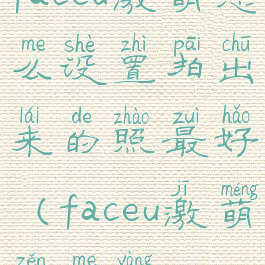 me shè zhì pāi chū
么设置拍出
lái de zhào zuì hǎo
来的照最好
jī méng
(faceu激萌
zěn me yàng